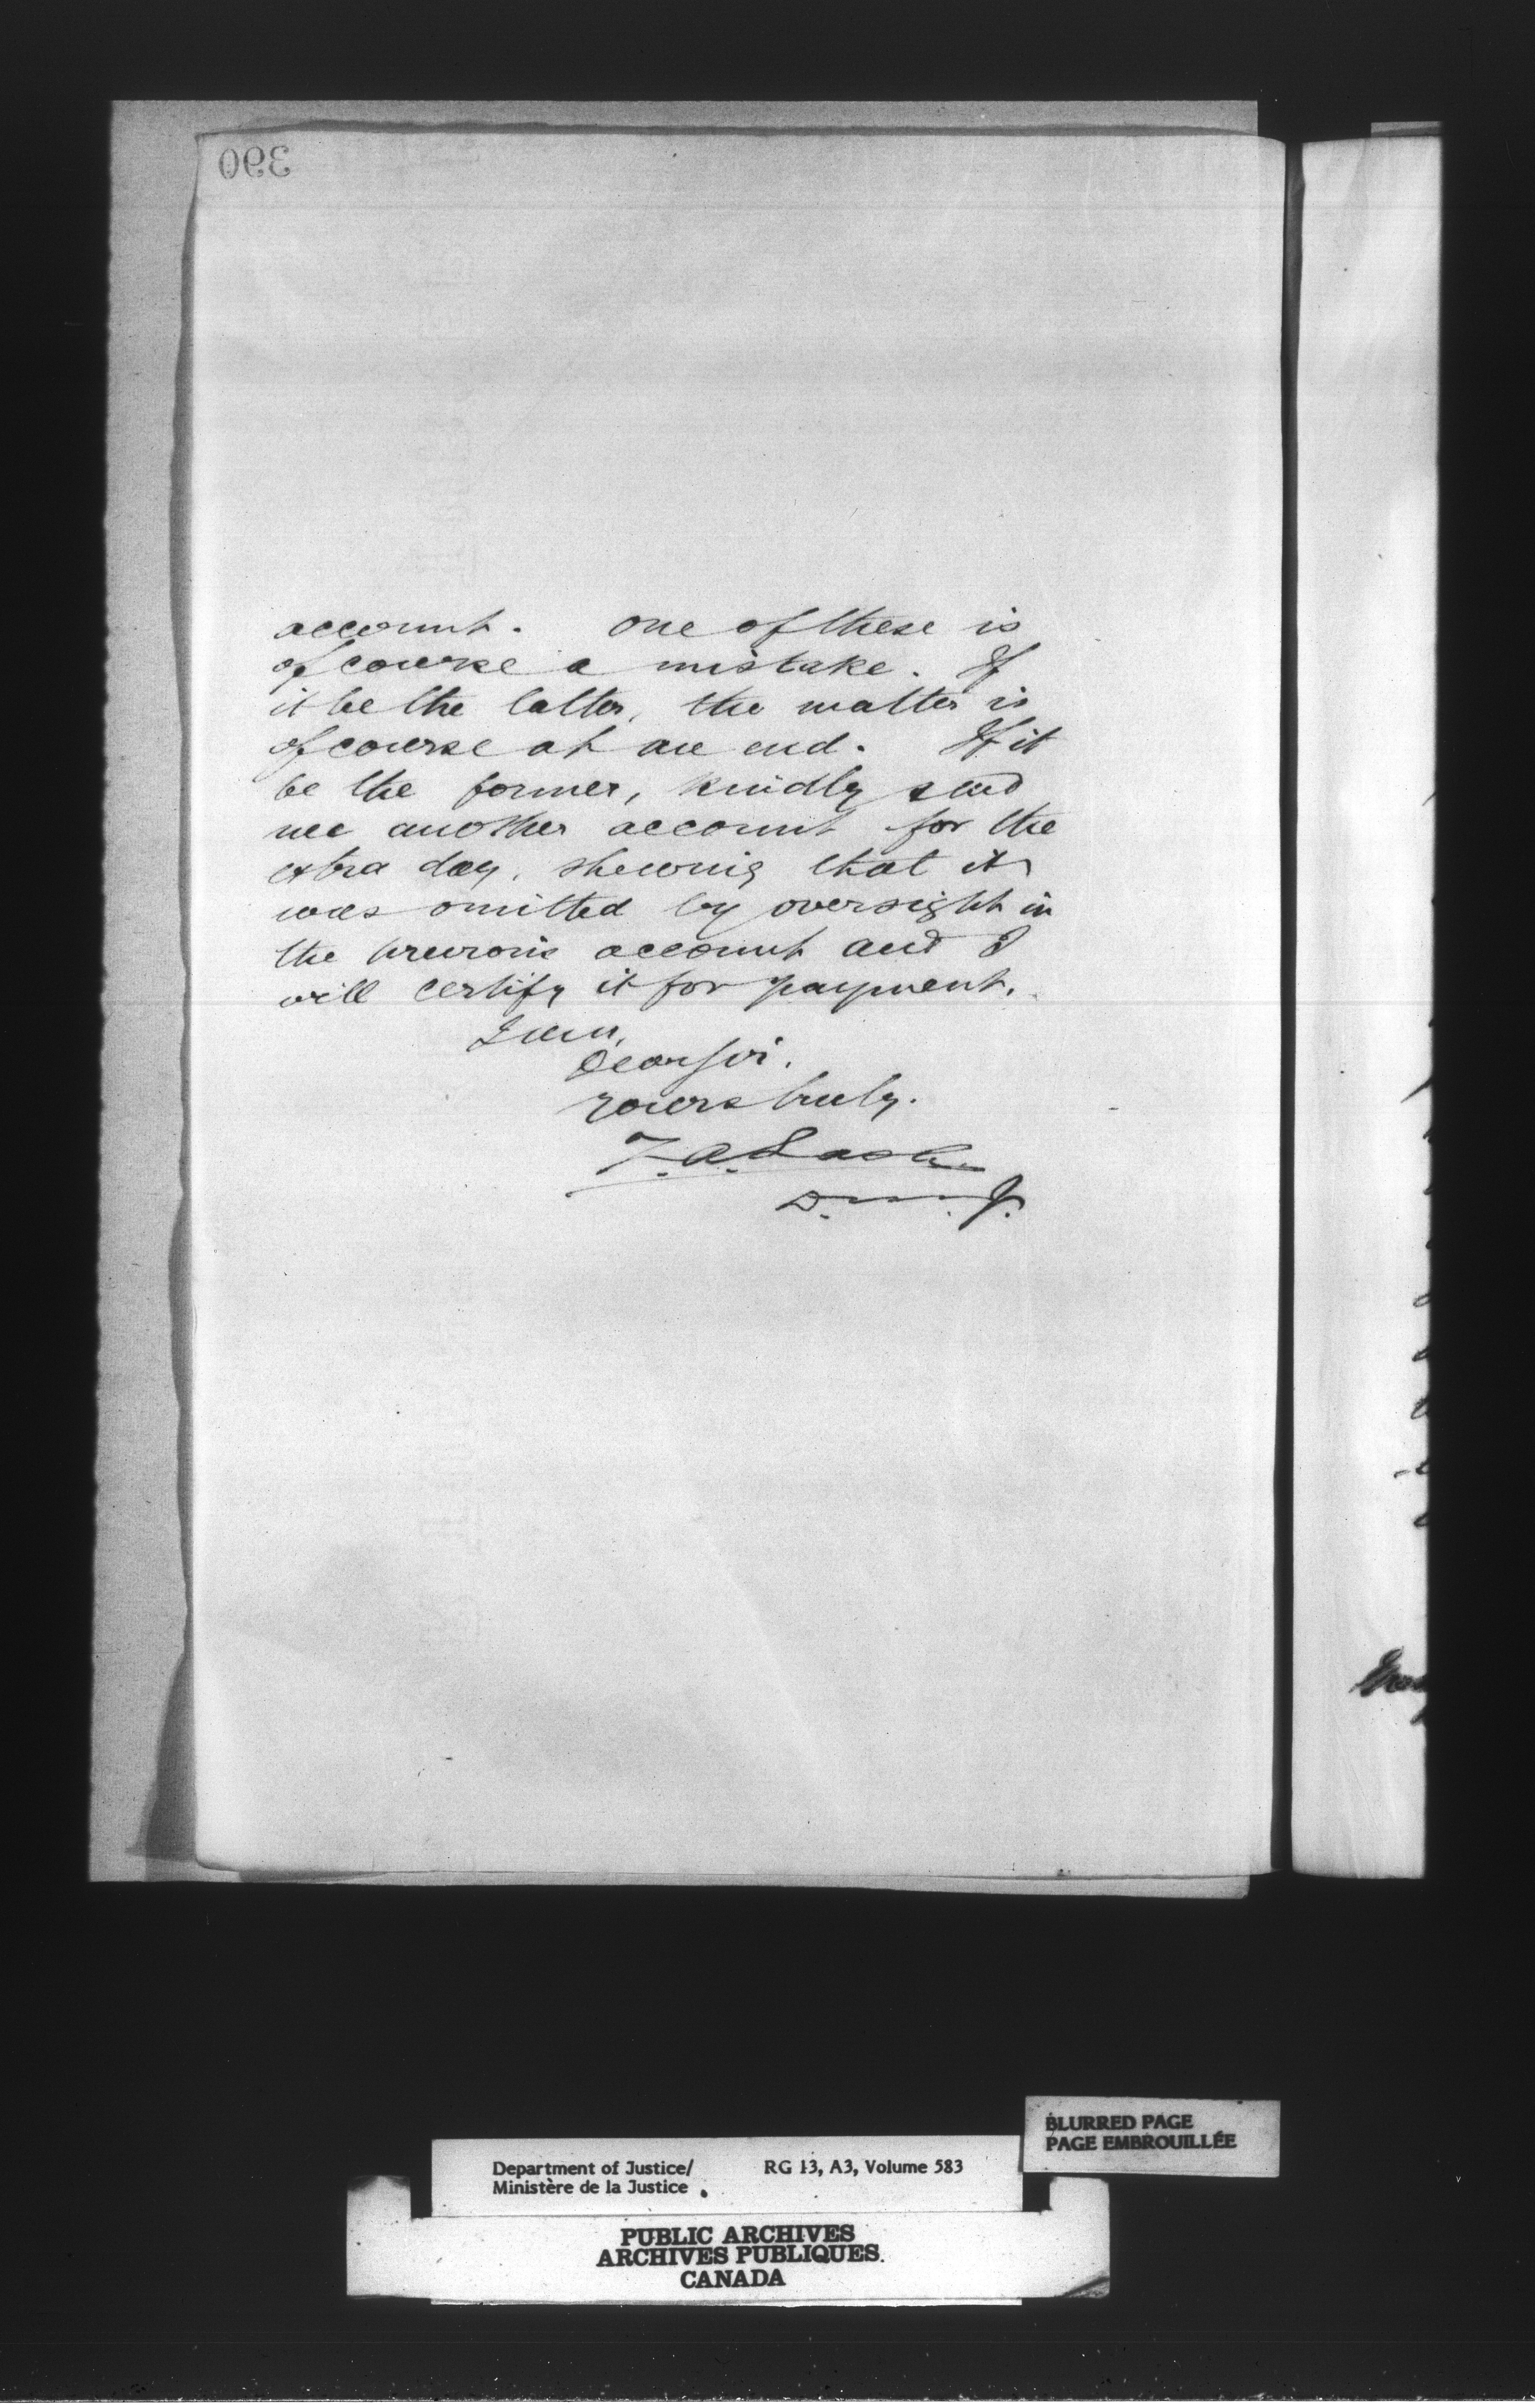 390
account. One of these is
of course a mistake. If
it be the latter, the matter is
of course at an end. If it
be the former, kindly send
me another account for the
extra day, shewing that it
was omitted by oversight in
the previous account and I
will certify it for payment.
I am,
Dear Sir.
Yours truly.
Z. A. Lash
D. M. J.
BLURRED PAGE
PAGE EMBROUILLÉE
Department of Justice/ RG 13, A3, Volume 583
Ministère de la Justice
PUBLIC ARCHIVES
ARCHIVES PUBLIQUES
CANADA